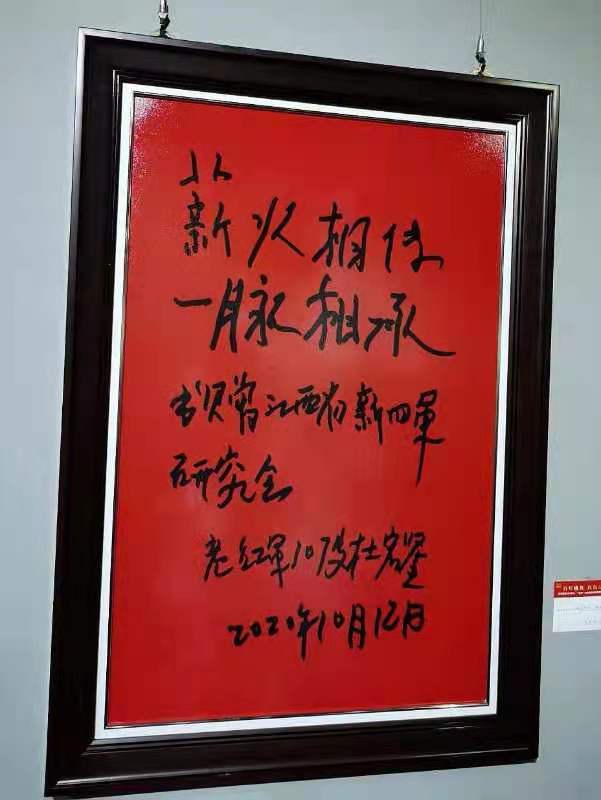 薪火相传
一脉相承
书赠江西省新四军
研究会
老红军107岁杜宏鉴
2020年10月12日